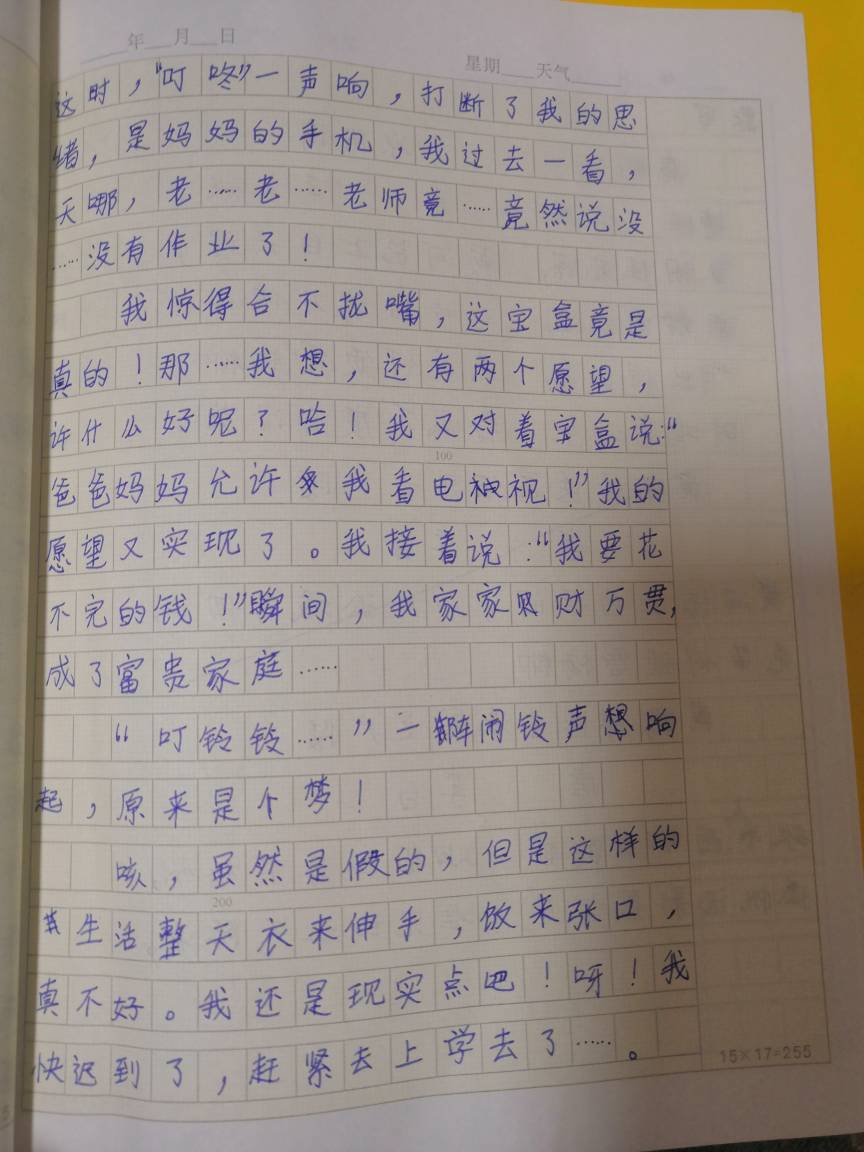 年 月 日
星期 天气
这时，“叮咚”一声响，打断了我的思
绪，是妈妈的手机，我过去一看，
天哪，老……老……老师竟……竟然说没
……没有作业了！
我惊得合不拢嘴，这宝盒竟是
真的！那……我想，还有两个愿望，
许什么好呢？哈！我又对着宝盒说：“
100
爸爸妈妈允许我看电视！”我的
愿望又实现了。我接着说：“我要花
不完的钱！”瞬间，我家家财万贯，
成了富贵家庭……
“叮铃铃……”一阵闹铃声响
起，原来是个梦！
咳，虽然是假的，但是这样的
200
生活整天衣来伸手，饭来张口，
真不好。我还是现实点吧！呀！我
快迟到了，赶紧去上学去了……。
15×17=255